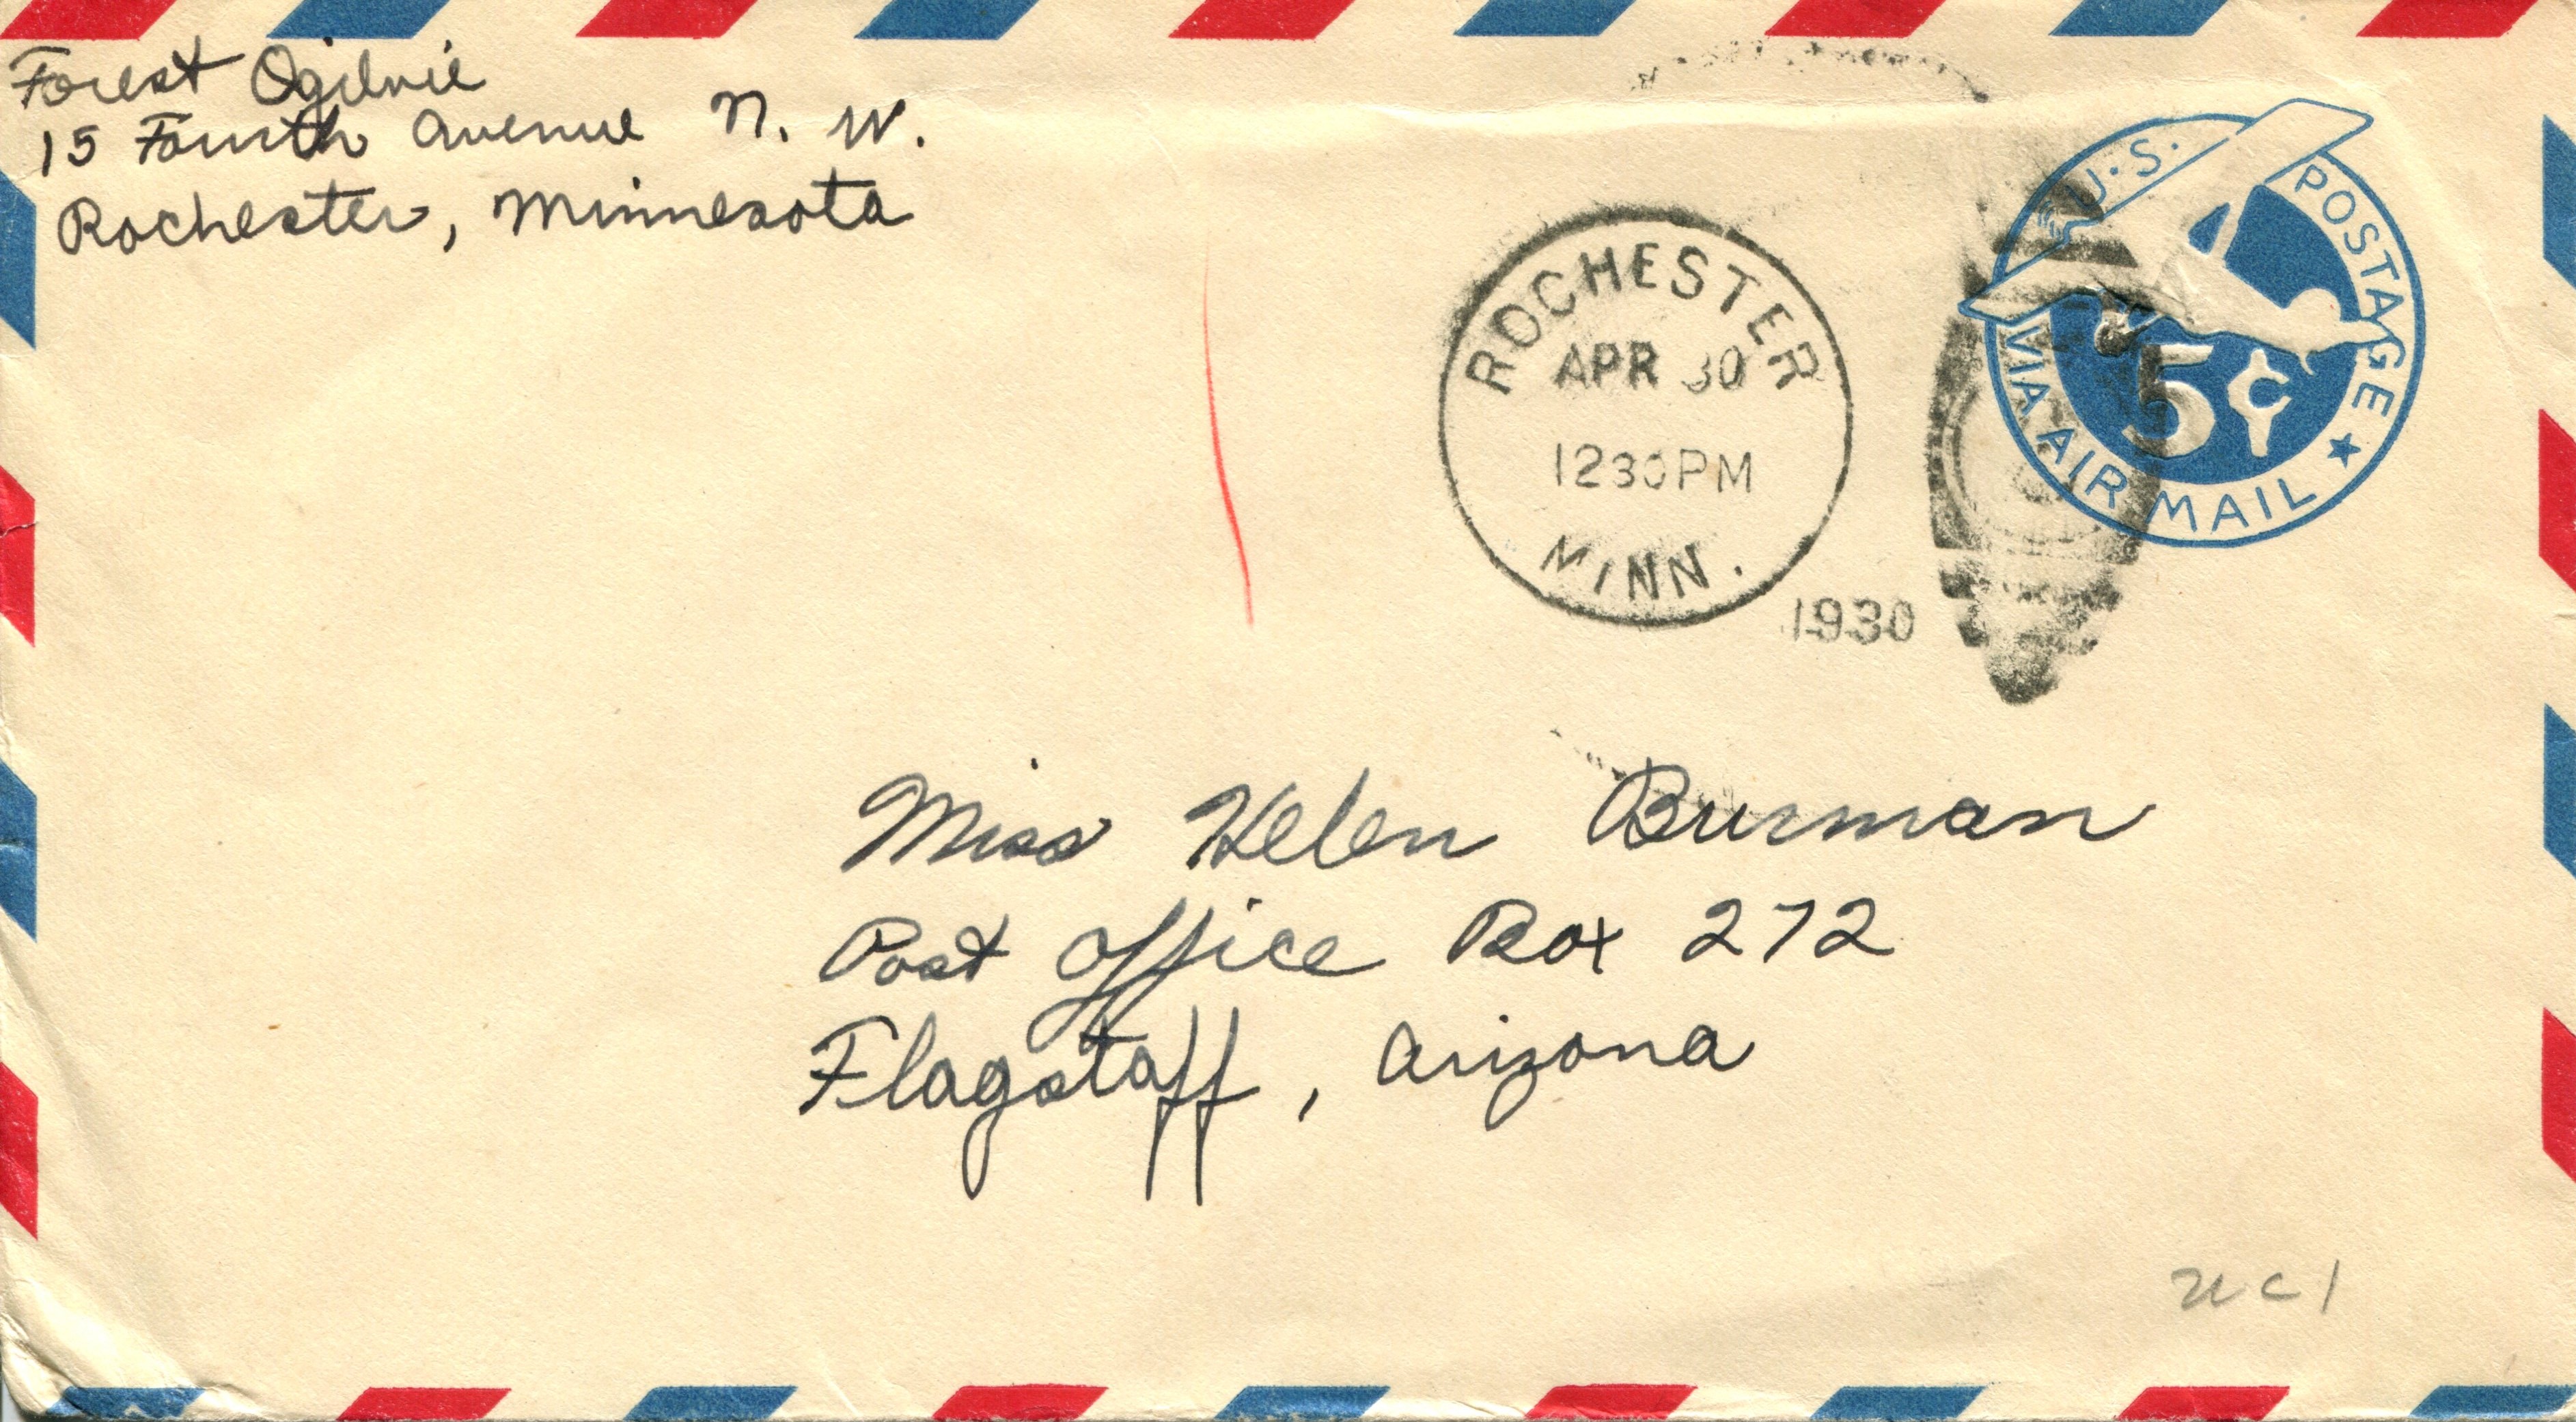 Forest Ogilvie
15 Fourth Avenue N. W.
Rochester, Minnesota
ROCHESTER
APR 30
1230PM
MINN.
1930
U.S. POSTAGE
5¢
VIA AIR MAIL
Miss Helen Burman
Post Office Box 272
Flagstaff, Arizona
UC1